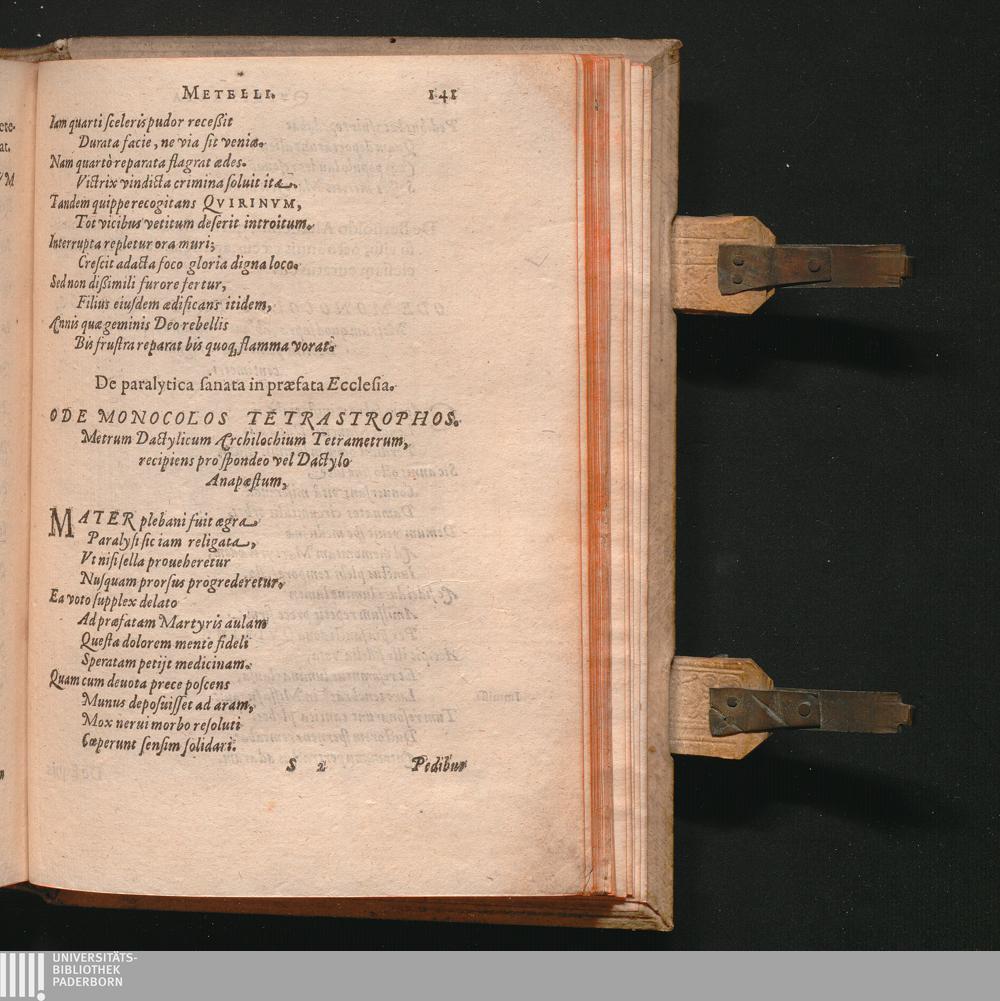 ete-
at.
VM
METELLI. 141
Iam quarti sceleris pudor recessit
Durata facie, ne via sit veniæ.
Nam quartò reparata flagrat ædes.
Victrix vindicta crimina soluit ita.
Tandem quippe recogitans QVIRINVM,
Tot vicibus vetitum deserit introitum.
Interrupta repletur ora muri;
Crescit adacta foco gloria digna loco.
Sed non dissimili furore fertur,
Filius eiusdem ædificans itidem,
Annis quæ geminis Deo rebellis
Bis frustra reparat bis quoq, flamma vorat.
De paralytica sanata in præfata Ecclesia.
ODE MONOCOLOS TETRASTROPHOS.
Metrum Dactylicum Archilochium Tetrametrum,
recipiens pro spondeo vel Dactylo
Anapæstum,
MATER plebani fuit ægra
Paralysi sic iam religata,
Vt nisi sella proueheretur
Nusquam prorsus progrederetur.
Ea voto supplex delato
Ad præfatam Martyris aulam
Questa dolorem mente fideli
Speratam petijt medicinam.
Quam cum deuota prece poscens
Munus deposuisset ad aram,
Mox nerui morbo resoluti
Cœperunt sensim solidari.
S 2 Pedibus
UNIVERSITÄTS-
BIBLIOTHEK
PADERBORN